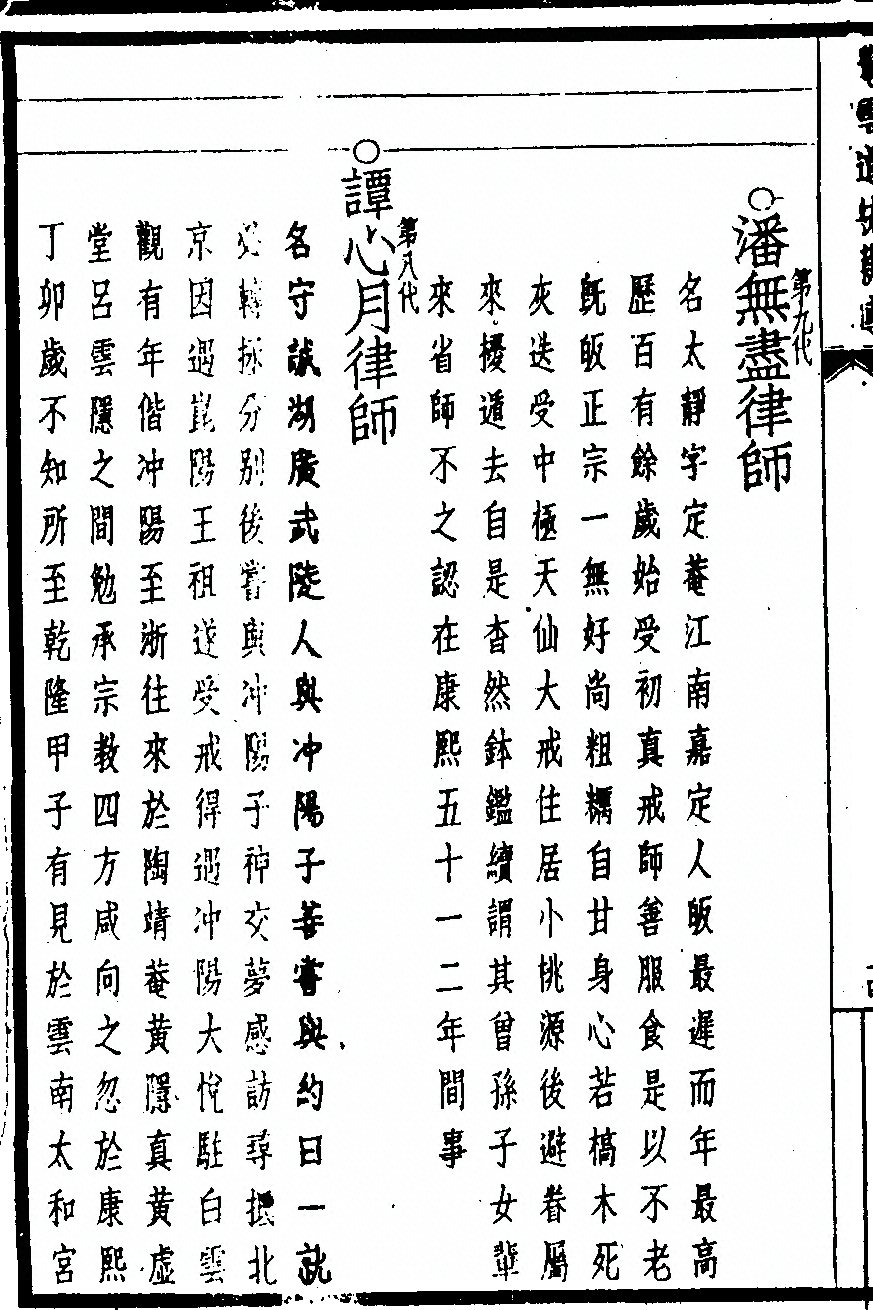 ○潘無盡律師
第九代
名太靜字定菴江南嘉定人皈最遲而年最高
歷百有餘歲始受初真戒師善服食是以不老
旣皈正宗一無好尚粗糲自甘身心若槁木死
灰迭受中極天仙大戒住居小桃源後避眷屬
來擾遁去自是杳然鉢鑑續謂其曾孫子女輩
來省師不之認在康熙五十一二年間事
○譚心月律師
第八代
名守誠湖廣武陵人與冲陽子善嘗與約曰一訛
必轉拯分別後嘗與冲陽子神交夢感訪尋抵北
京因遇崑陽王祖遂受戒得遇冲陽大悅駐白雲
觀有年偕冲陽至浙往來於陶靖菴黄隱真黄虛
堂呂雲隱之間勉承宗教四方咸向之忽於康熙
丁卯歲不知所至乾隆甲子有見於雲南太和宮